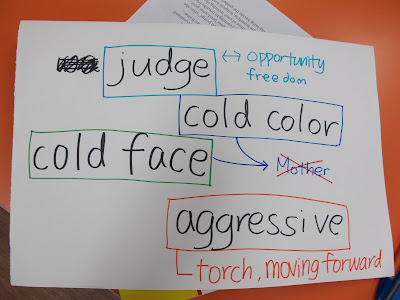 judge ↔ opportunity
freedom
cold color
cold face
Mother
aggressive
torch, moving forward